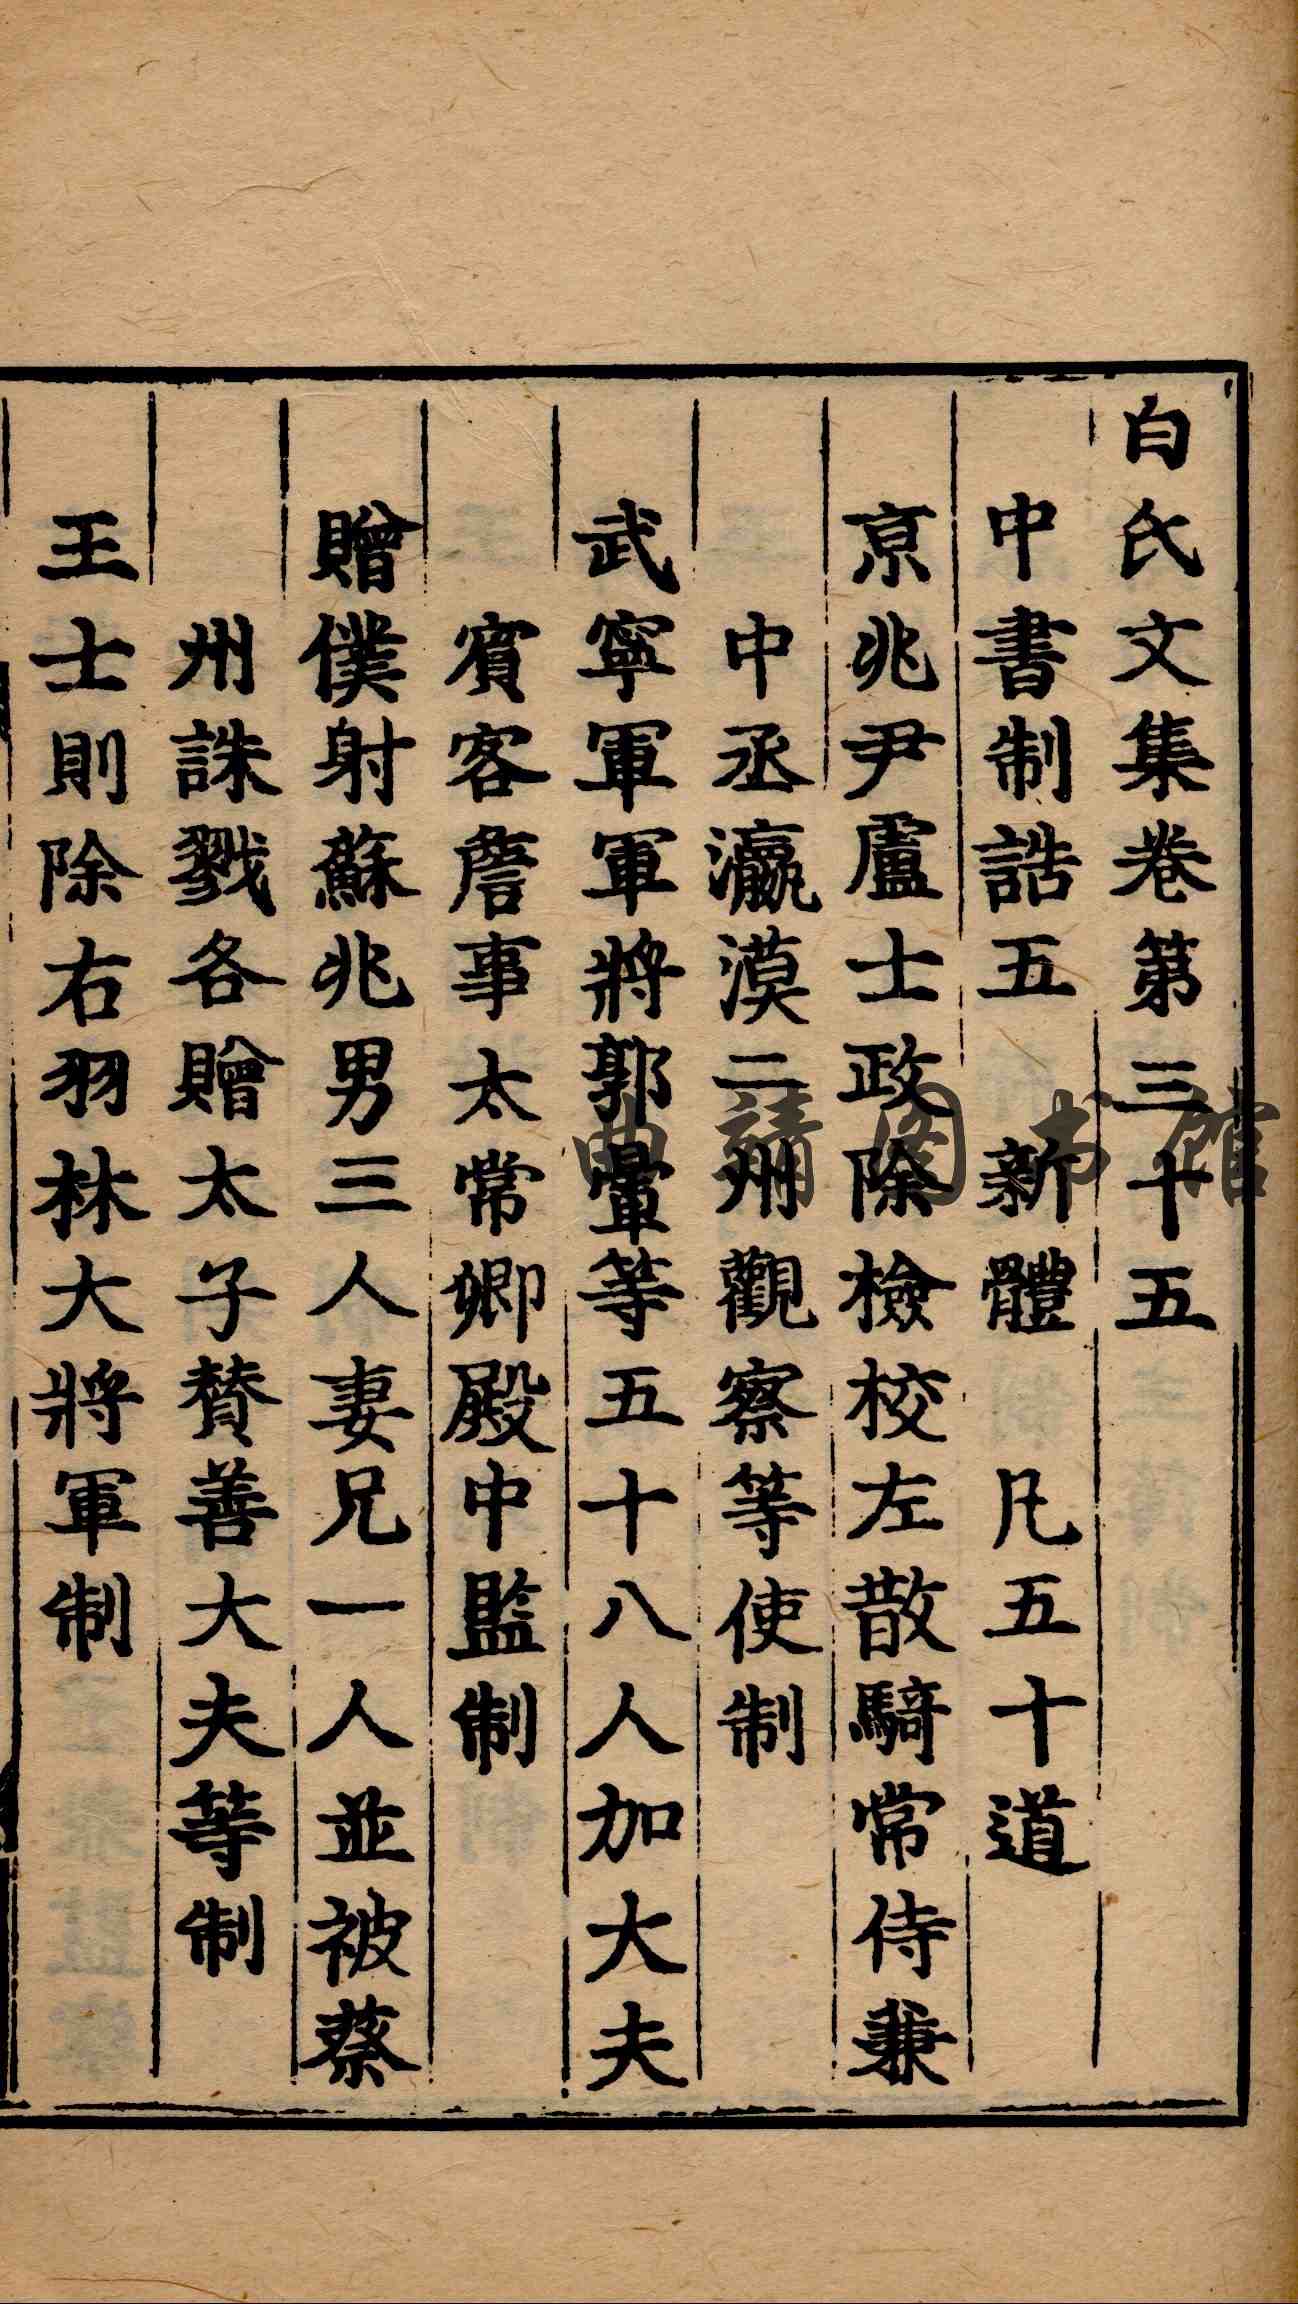 白氏文集卷第三十五
中書制誥五 新體 凡五十道
京兆尹盧士政除檢校左散騎常侍兼
中丞瀛漠二州觀察等使制
武寧軍軍將郭暈等五十八人加大夫
賓客詹事太常卿殿中監制
贈僕射蘇兆男三人妻兄一人並被蔡
州誅戮各贈太子賛善大夫等制
王士則除右羽林大將軍制
曲靖图书馆